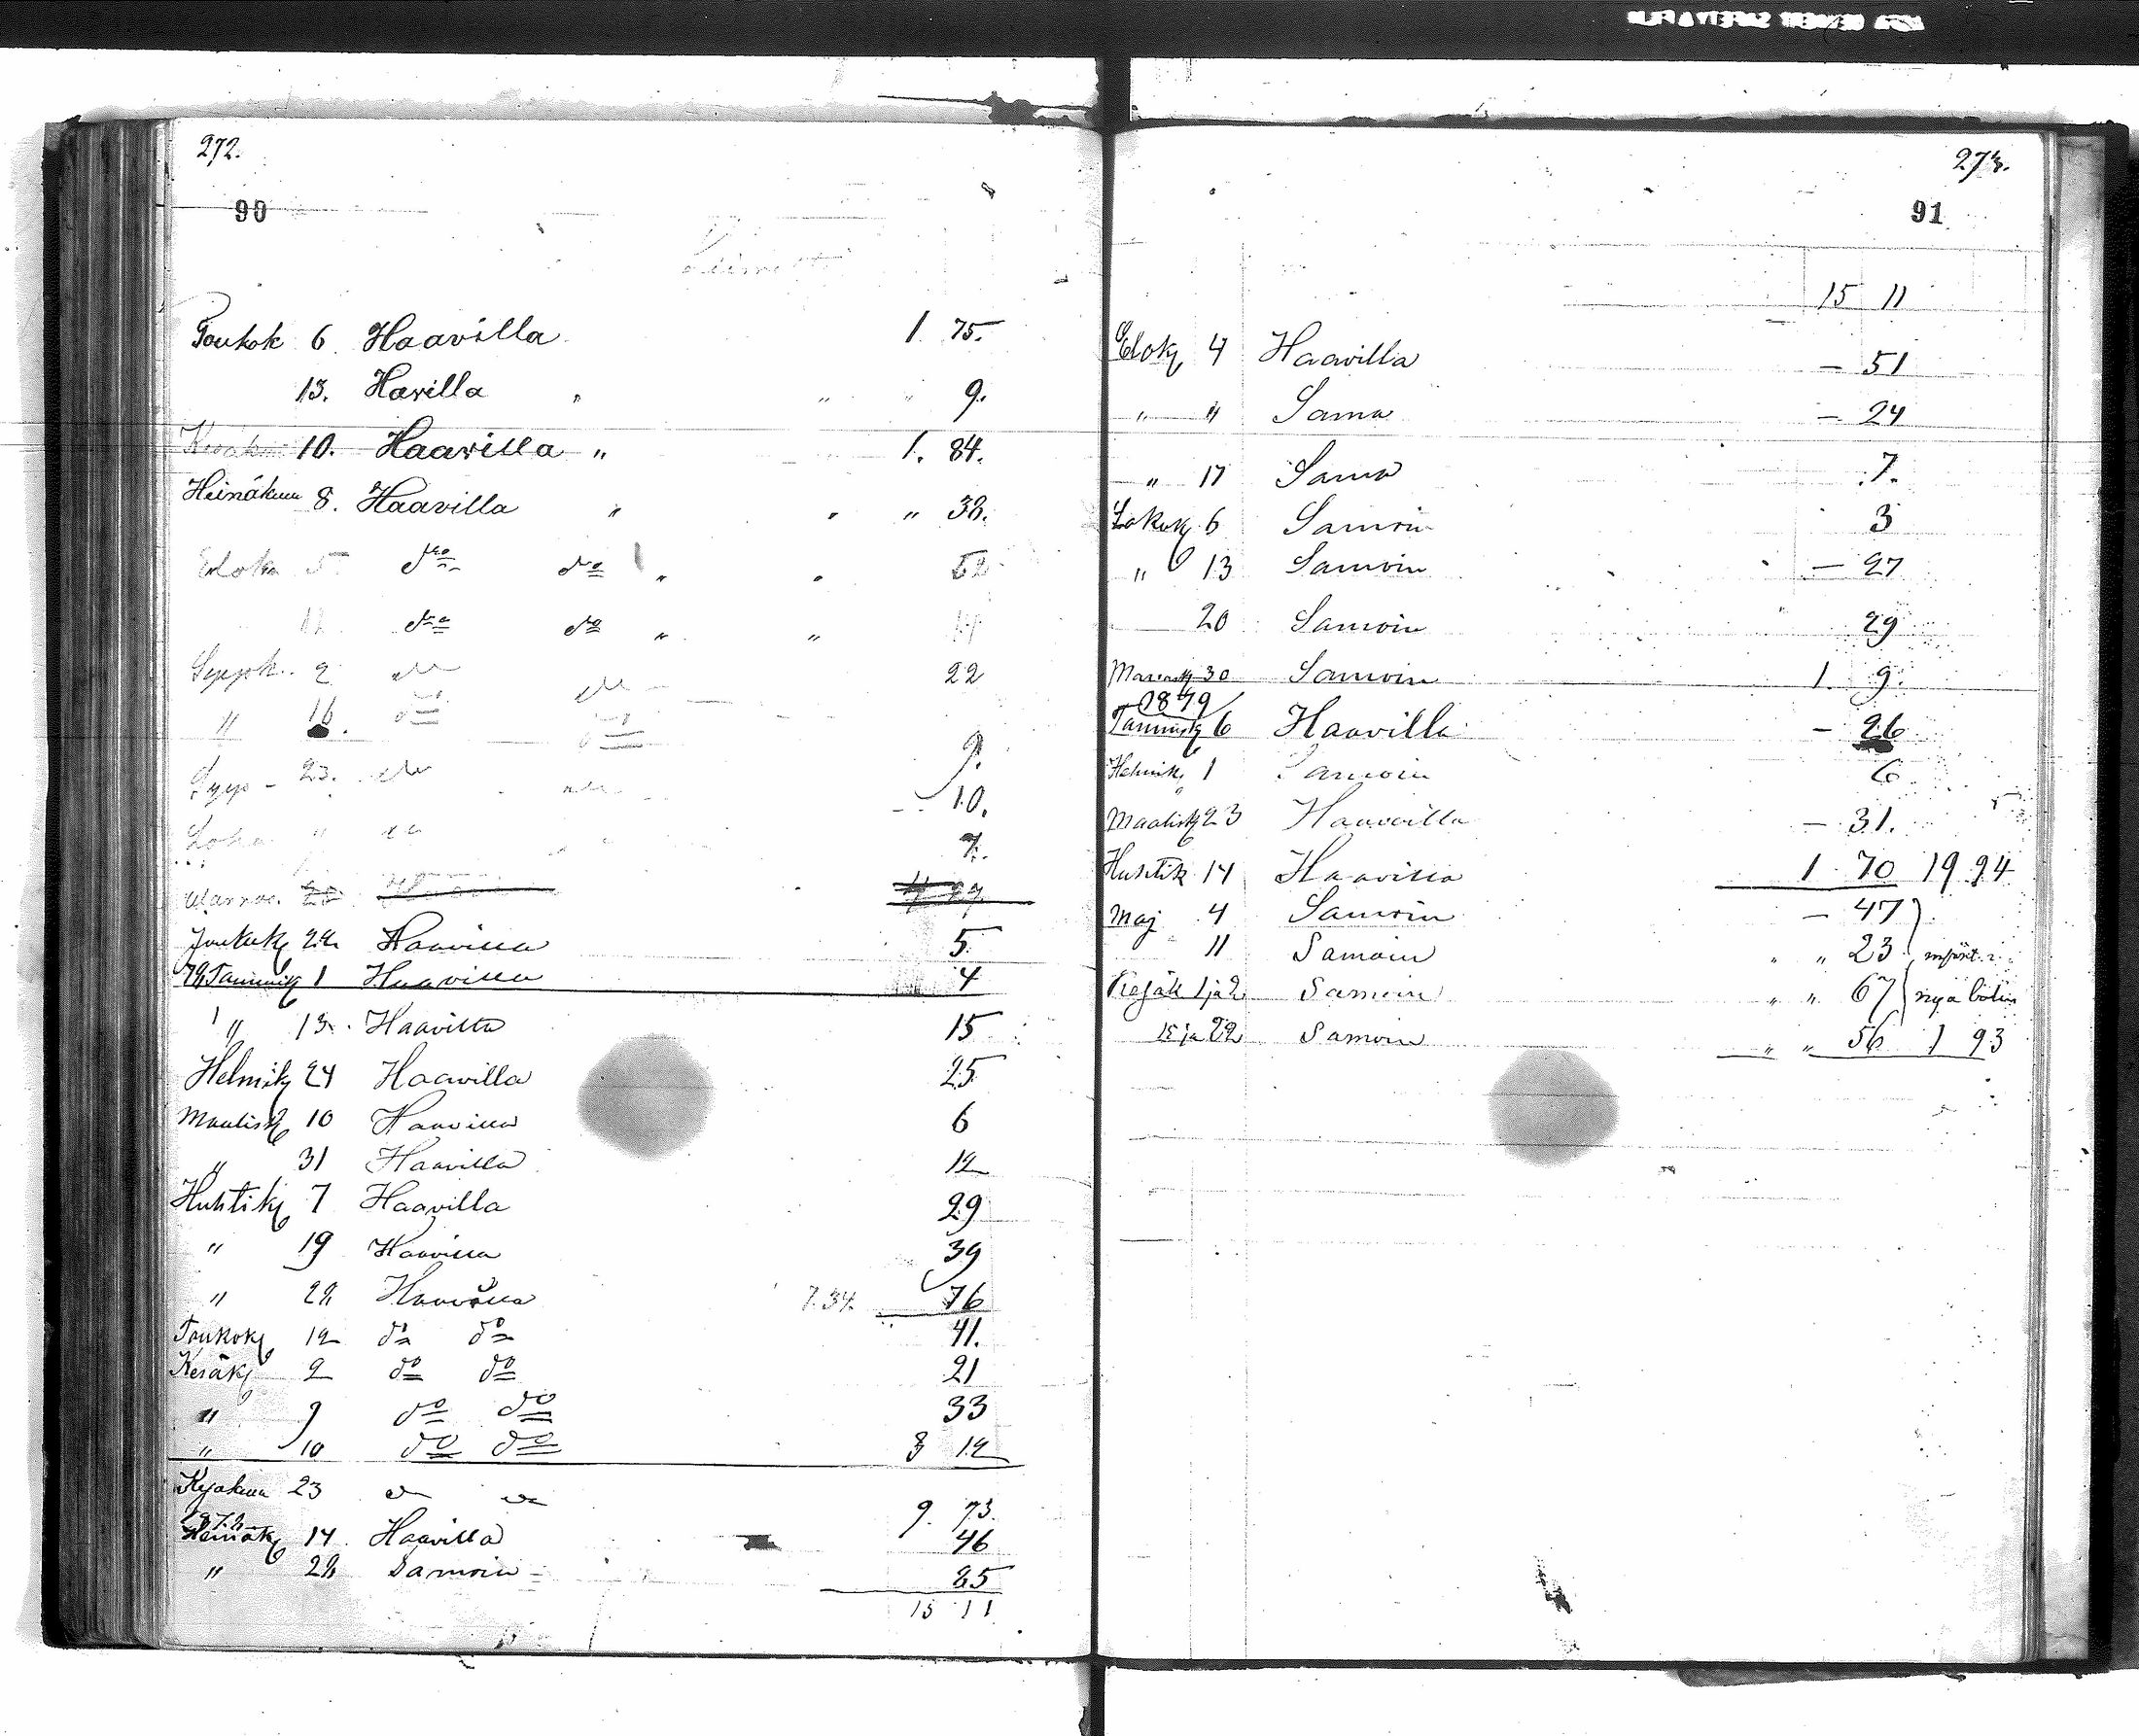 272.
90
Toukok 6 Haavilla 1 75.
13. Havilla " " " 9.
10. Haavilla " 1. 84.
Heinäkuu 8. Haavilla " " " 38.
Elok 5 dto do " " 52
dto do " "
Syysk. 2 do do 22
" 16. do do 9.
Syys - 23. do do 10.
Loka " do 7.
Marras.
Jouluk 22 Haavilla 5
79 Tammik 1 Haavilla 4
" 13. Haavilla 15
Helmik 24 Haavilla 25
Maalisk 10 Haavilla 6
" 31 Haavilla 12
Huhtik 7 Haavilla 29
" 19 Haavilla 39
" 28 Haavilla 7.34. 76
Toukok 12 do do 41.
Kesäk 2 do do 21
" 9 do do 33
" 10 do do 3 12
Kesäkuu 23 do do 9. 73.
Heinäk 14 Haavilla 46
" 28 Samoin 85
15 11
273.
91
15 11
Elok 4 Haavilla — 51
" " Sama — 24
" 17 Sama 7.
Lokok 6 Samoin 3
" 13 Samoin — 27
20 Samoin 29
Marrask 30 Samoin 1. 9.
1879
Tammik 6 Haavilla — 26
Helmik 1 Samoin 6
Maalisk 23 Haavilla — 31.
Huhtik 14 Haavilla 1 70 19 94
Maj 4 Samoin — 47
11 Samoin " " 23
Kesäk 1 ja 2 Samoin " " 67 nya
15 ja 22 Samoin " " 56 1 93